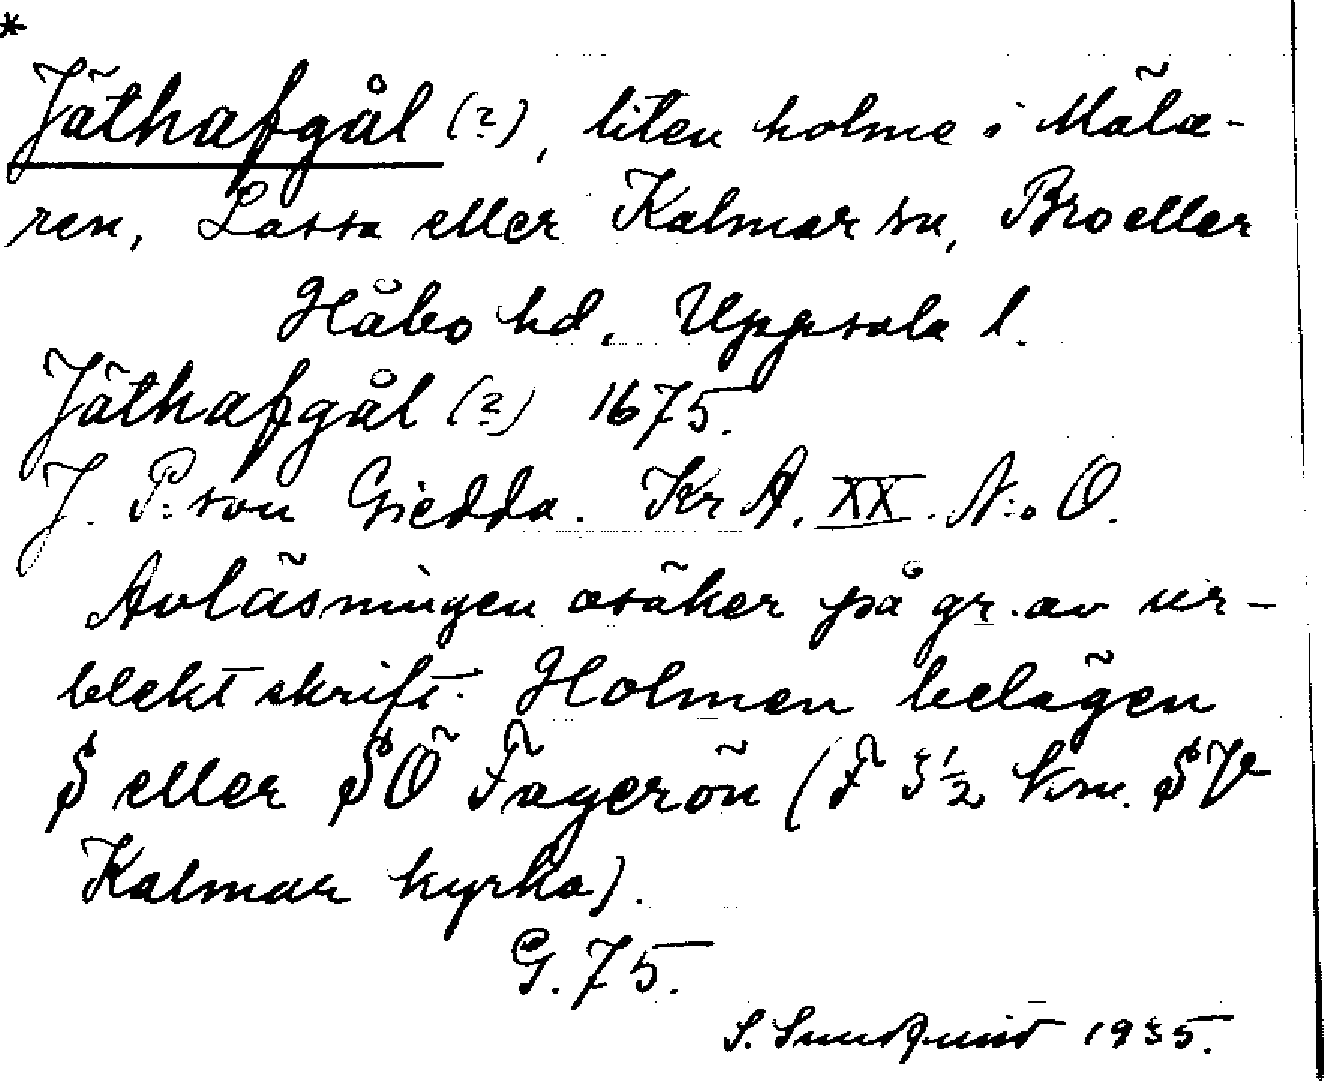 *
Jäthafgål (?), liten holme i Mäla-
ren, Lassa eller Kalmar sn, Bro eller
Håbo hd. Uppsala l.
Jäthafgål (?) 1675.
J. P:son Giedda. Kr A. XX. N:o O.
Avläsningen osäker på gr. av ur-
blekt skrift. Holmen belägen
S eller SÖ Fagerön (F 3½ km. SV
Kalmar kyrka).
G. 75.
S. Sundqvist 1935.